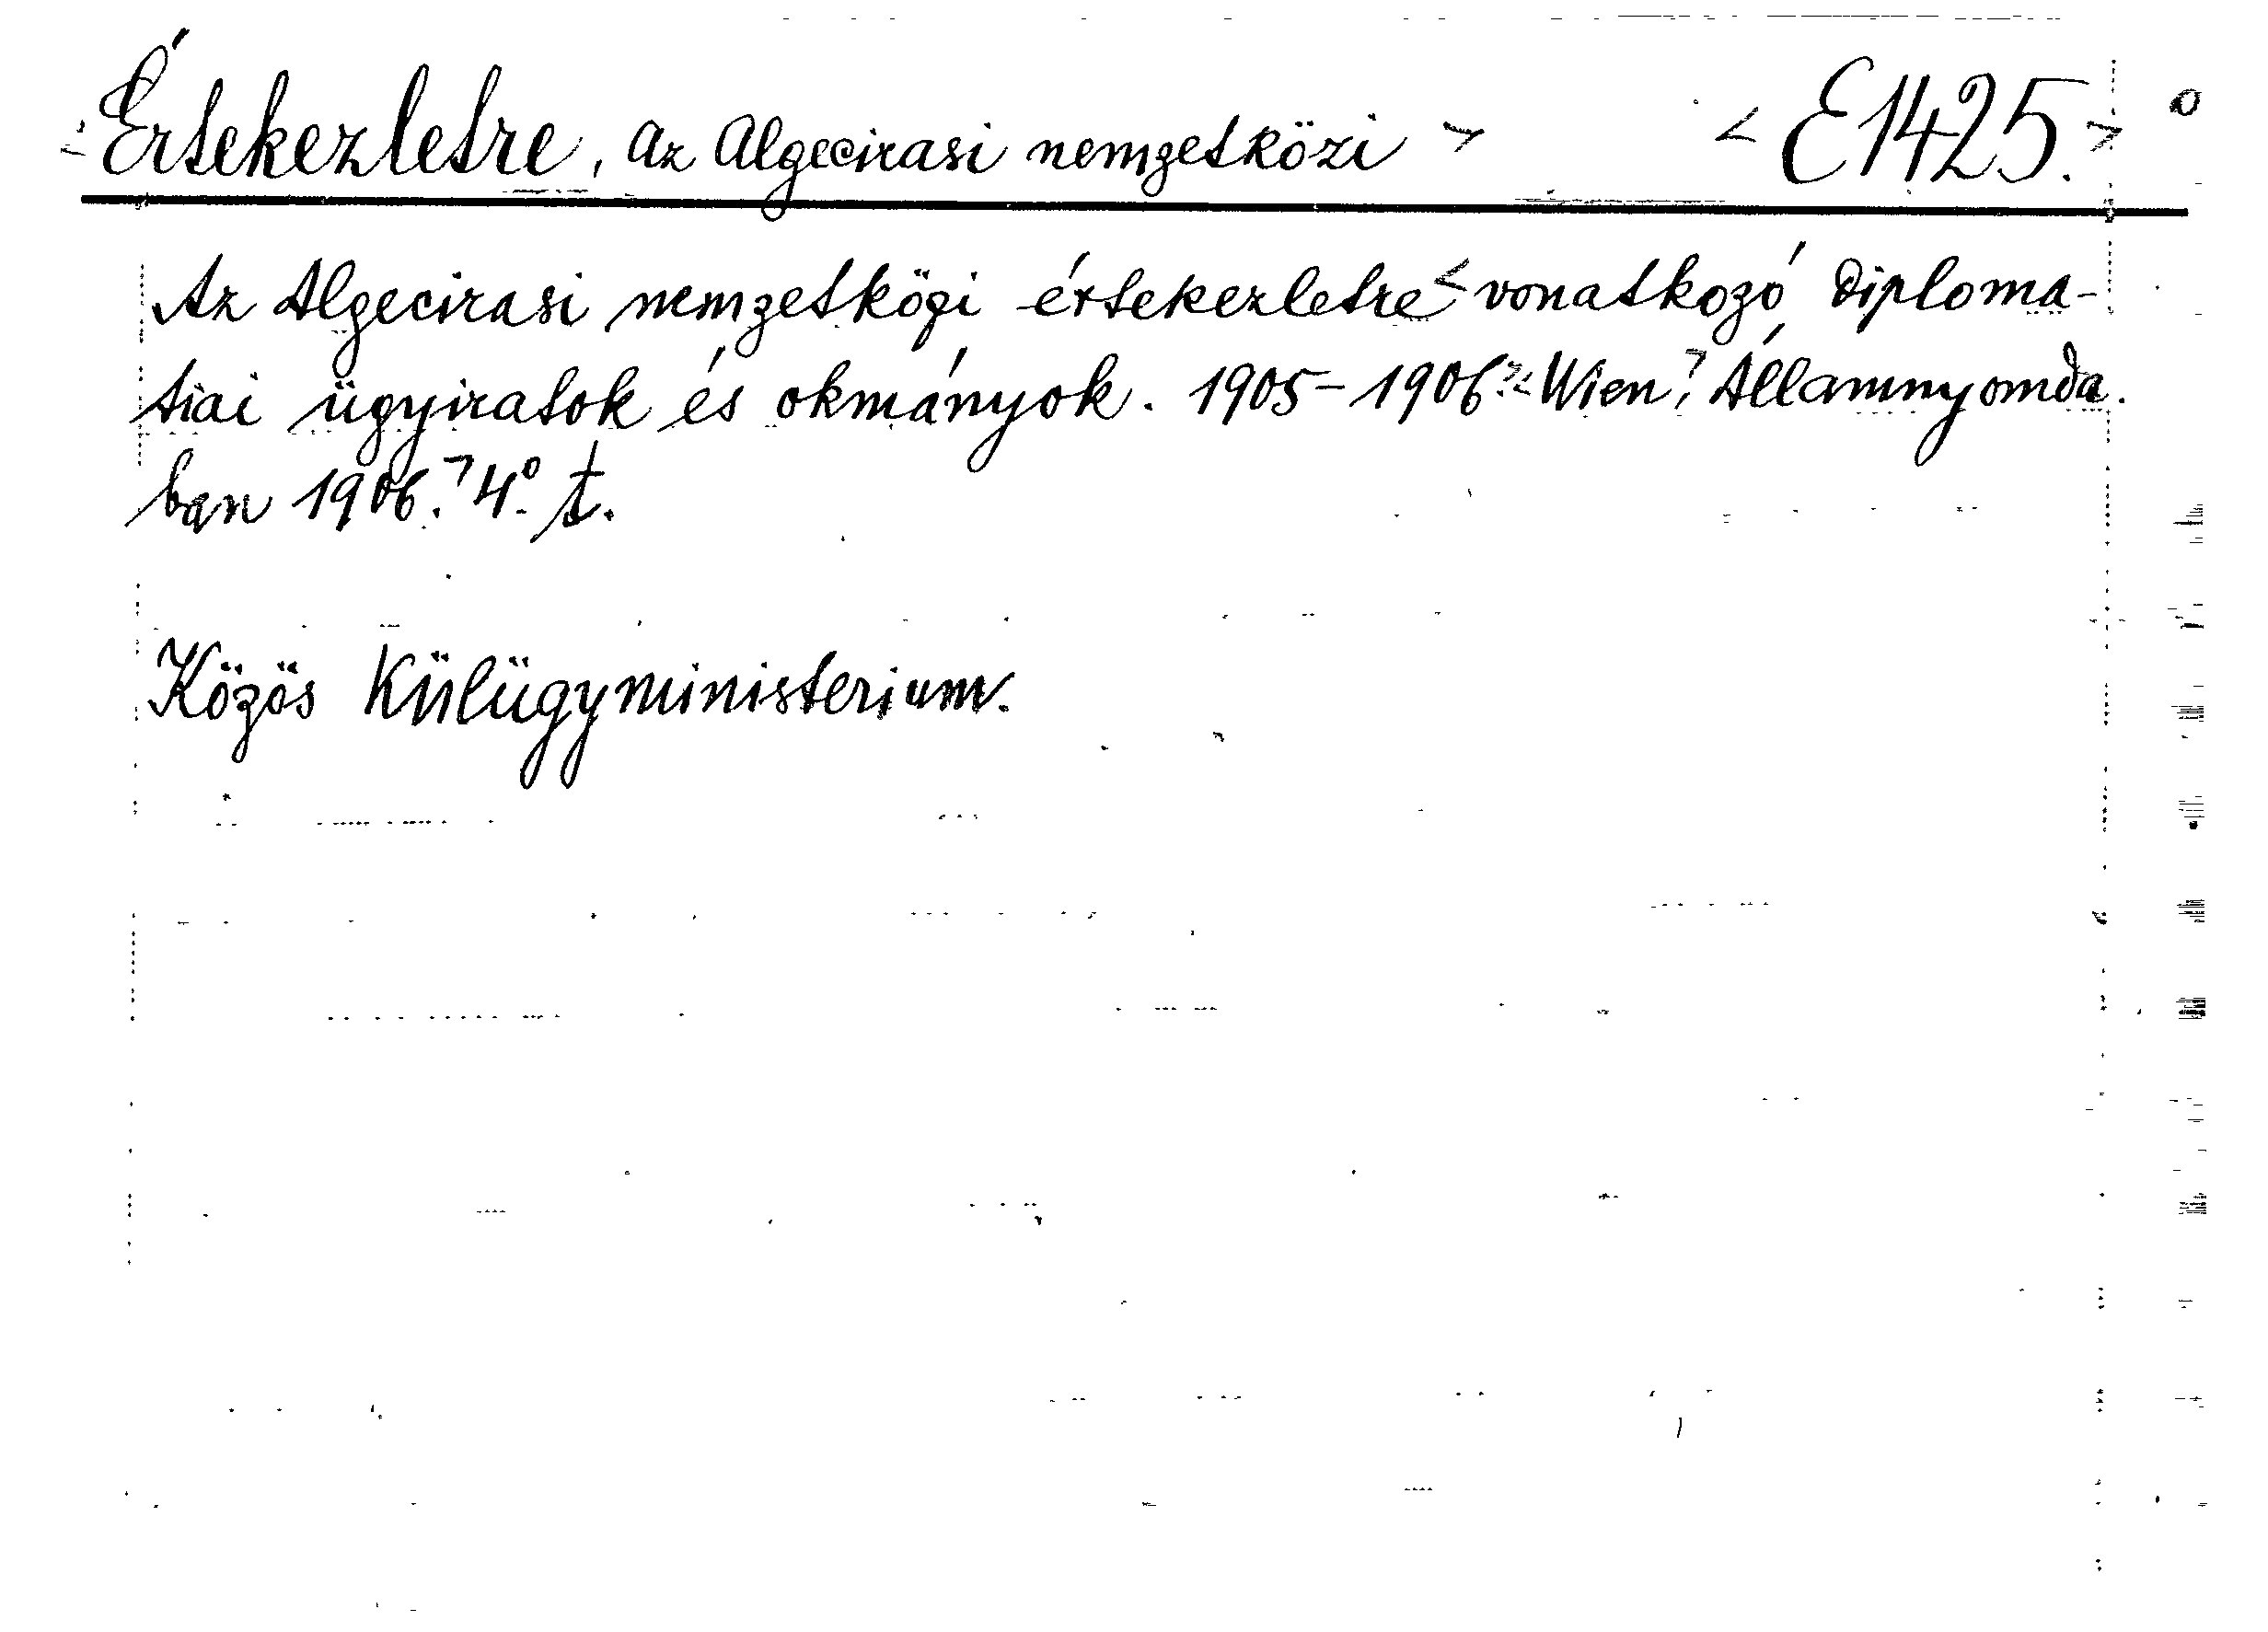 Értekezletre, az Algecirasi nemzetközi E1425.
Az Algecirasi nemzetközi értekezletre vonatkozó diploma-
tiai ügyiratok és okmányok. 1905-1906. Wien, Államnyomda
ban 1906. 4° t.
Közös Külügyministerium.